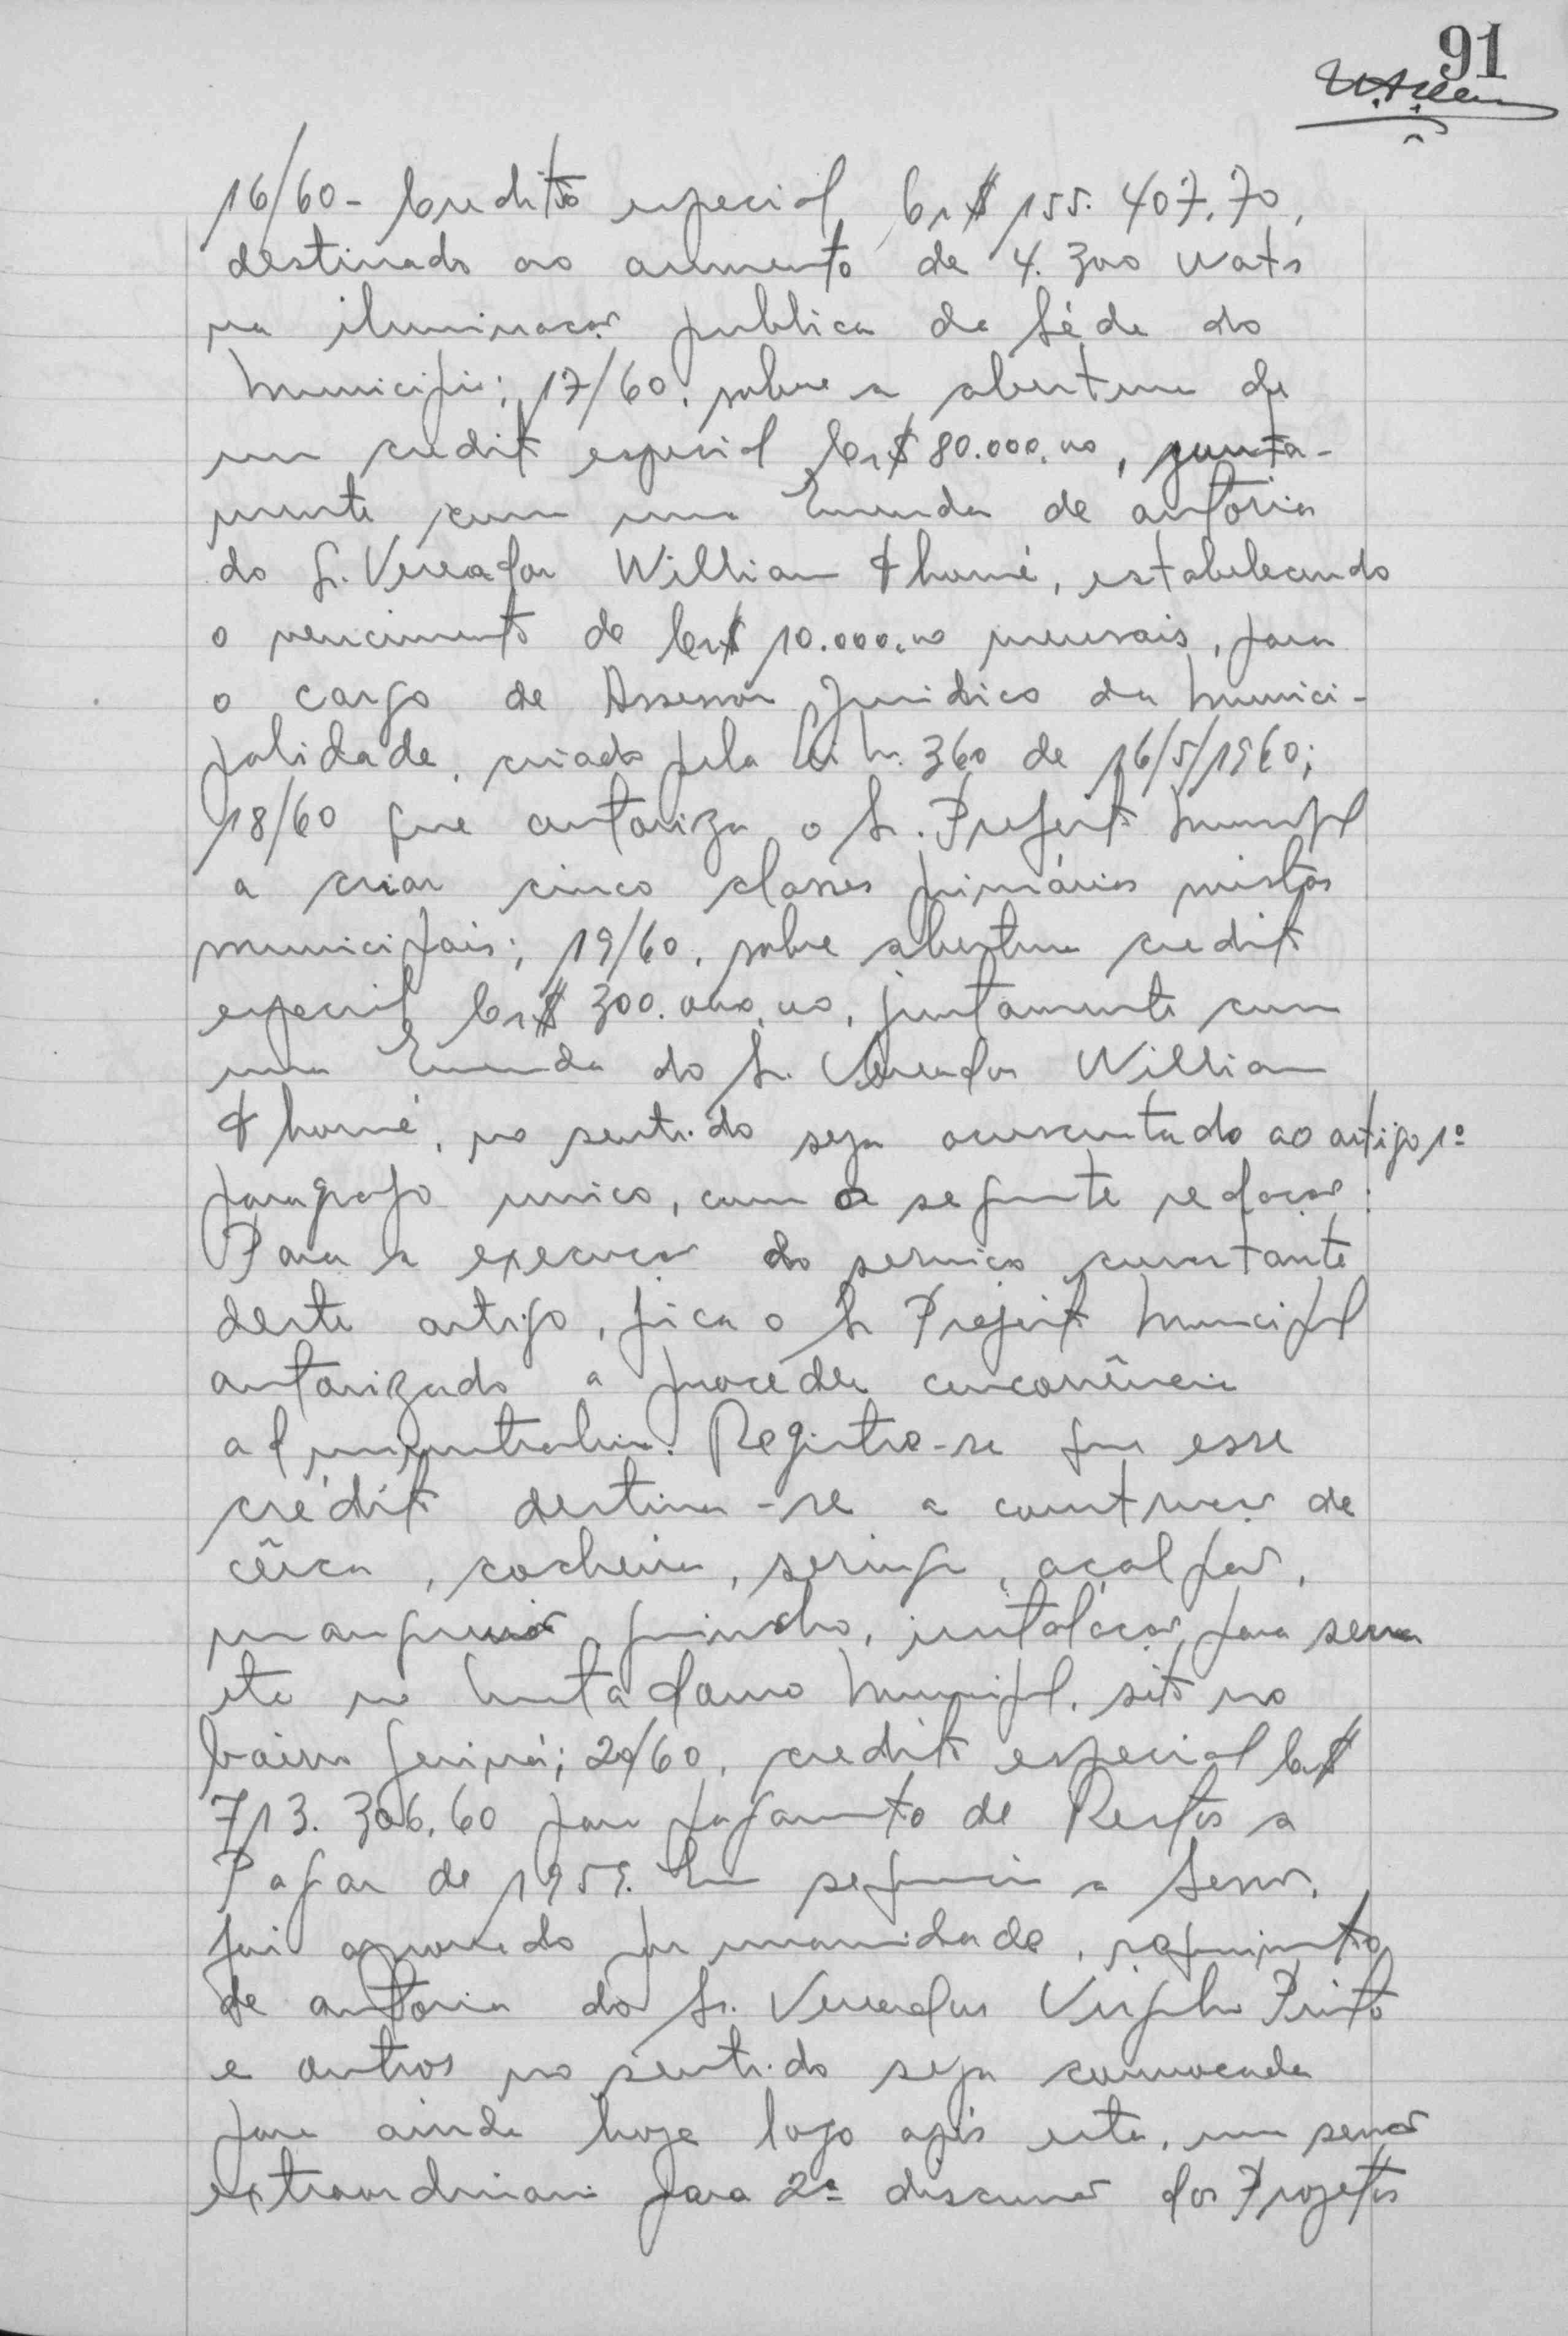 91
16/60 - Credito especial Cr$ 155.407,70,
destinado ao aumento de 4.300 wats
na iluminação publica da Séde do
Municipio; 17/60, sobre a abertura de
um credito especial Cr$ 80.000,00, junta-
mente com uma Emenda de autoria
do Sr. Vereador Willian Thomé, estabelecendo
o vencimento de Cr$ 10.000,00 mensais, para
o cargo de Assessor Juridico da Munici-
palidade, criado pela Lei n. 360 de 16/5/1960;
18/60 que autoriza o Sr. Prefeito Municipal
a criar cinco classes primárias mistas
municipais; 19/60, sobre abertura credito
especial Cr$ 300.000,00, juntamente com
uma Emenda do Sr. Vereador Willian
Thomé, no sentido seja acrescentado ao artigo 1º
paragrafo unico, com a seguinte redação:
Para a execução do serviço constante
deste artigo, fica o Sr Prefeito Municipal
autorizado a proceder concorrência
administrativa. Registre-se que esse
crédito destina-se a construção de
cêrca, cocheira, seringa, açalpão,
mangueirão, guincho, instalação para serra
etc no Matadouro Municipal, sito no
bairro Guirá; 20/60, credito especial Cr$
713.306,60 para pagamento de Restos a
Pagar de 1959. Em sequencia a Sessão,
foi aprovado por unanimidade, requerimento
de autoria do Sr. Vereador Virgilio Pinto
e outros no sentido seja convocada
para ainda hoje logo após esta, uma sessão
extraordinaria para 2ª discussão dos Projetos